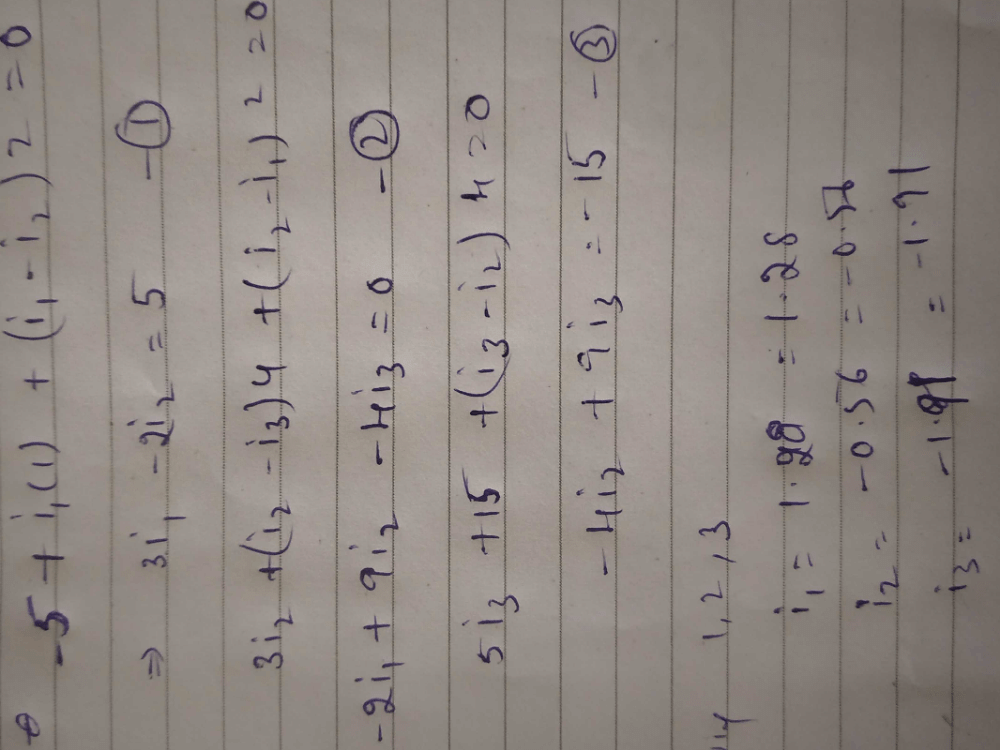 -5 + i₁(1) + (i₁ - i₂) 2 = 0
⇒ 3i₁ - 2i₂ = 5 - ①
3i₂ + (i₂ - i₃)4 + (i₂ - i₁) 2 = 0
-2i₁ + 9i₂ - 4i₃ = 0 - ②
5i₃ + 15 + (i₃ - i₂) 4 = 0
-4i₂ + 9i₃ = -15 - ③
1, 2, 3
i₁ = 1.28 = 1.28
i₂ = -0.56 = -0.56
i₃ = = -1.91